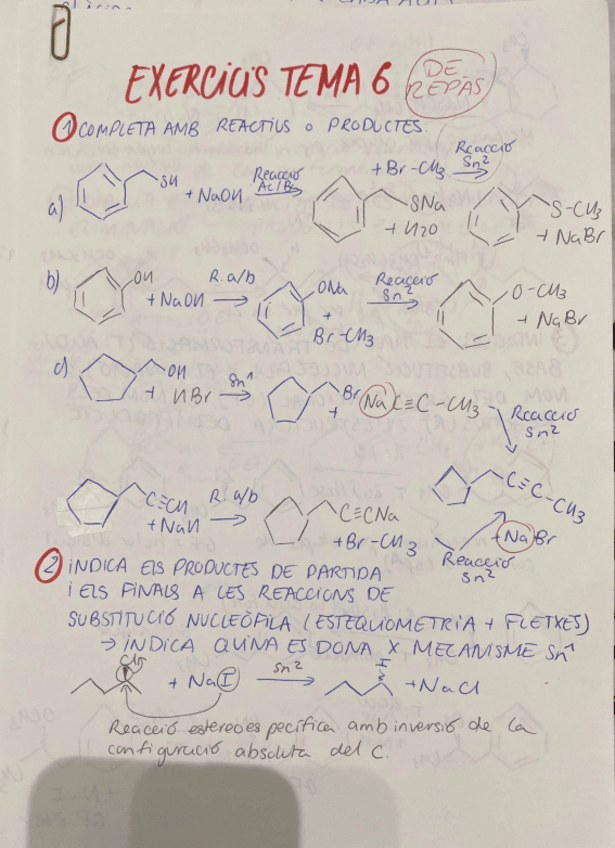 EXERCICIS TEMA 6 DE REPÀS
① COMPLETA AMB REACTIUS O PRODUCTES.
a) SH + NaOH Reacció Ac/Bs SNa + H2O + Br-CH3 Reacció Sn2 S-CH3 + NaBr
b) OH + NaOH R. a/b ONa + Br-CH3 Reacció Sn2 O-CH3 + NaBr
c) OH + HBr Sn1 Br + Na C≡C-CH3 Reacció Sn2
C≡C-CH3
+ NaBr
C≡CH + NaH R. a/b C≡CNa + Br-CH3 Reacció Sn2
② INDICA ELS PRODUCTES DE PARTIDA
i ELS FINALS A LES REACCIONS DE
SUBSTITUCIÓ NUCLEÒFILA (ESTEQUIOMETRIA + FLETXES)
→ INDICA QUINA ES DONA X MECANISME Sn1
+ NaI Sn2 I + NaCl
Reacció estereoespecífica amb inversió de la
configuració absoluta del C.